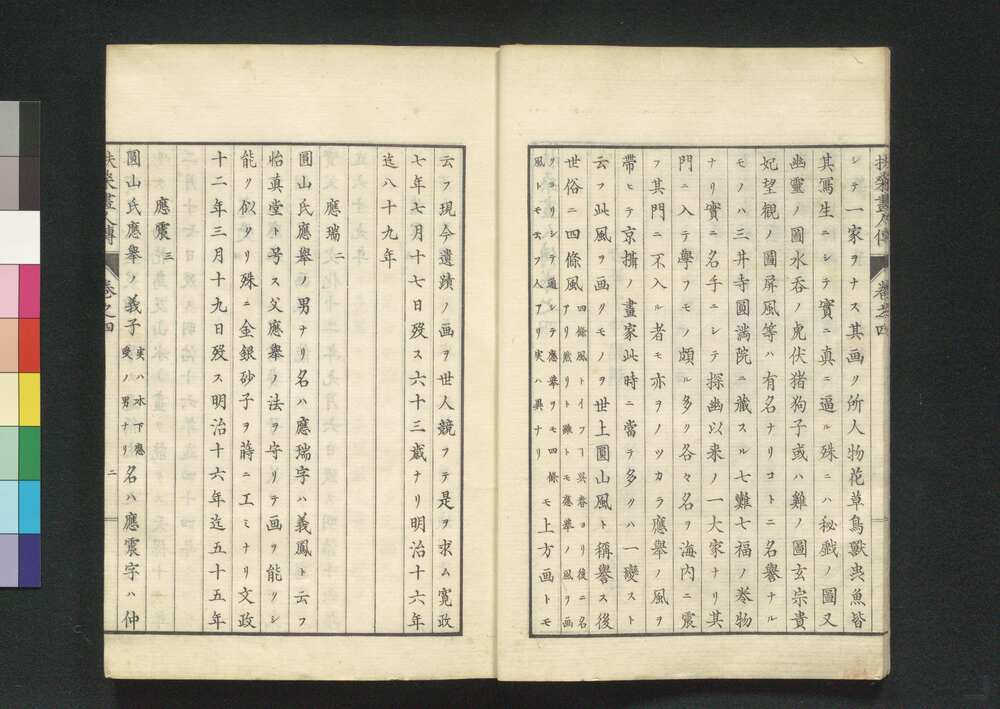 シテ一家ヲナス其画ク所人物花草鳥獸虫魚皆
其寫生ニシテ實ニ真ニ逼ル殊ニハ秘戯ノ圖又
幽靈ノ圖水呑ノ虎伏猪狗子或ハ雞ノ圖玄宗貴
妃望觀ノ圖屏風等ハ有名ナリコトニ名譽ナル
モノハ三井寺圓満院ニ藏スル七難七福ノ巻物
ナリ實ニ名手ニシテ探幽以来ノ一大家ナリ其
門ニ入テ學フモノ頗ル多ク各々名ヲ海内ニ震
フ其門ニ不入ル者モ亦ヲノツカラ應舉ノ風ヲ
帶ヒテ京攝ノ畫家此時ニ當テ多クハ一變スト
云フ此風ヲ画クモノヲ世上圓山風ト稱譽ス後
世俗ニ四條風
四條風トイフハ呉春ヨリ後ニ名
アリ然リト雖モ應舉ノ風ヲ画
クヨリシテ通シテ應舉ヲモ四條
風トモ云フ人アリ実ハ異ナリ
モ上方画トモ
扶桑畫人傳
巻之四
云フ現今遺蹟ノ画ヲ世人競フテ是ヲ求ム寛政
七年七月十七日歿ス六十三歳ナリ明治十六年
迄八十九年
應瑞二
圓山氏應舉ノ男ナリ名ハ應瑞字ハ義鳳ト云フ
怡真堂ト号ス父應舉ノ法ヲ守リテ画ヲ能クシ
能ク似タリ殊ニ金銀砂子ヲ蒔ニ工ミナリ文政
十二年三月十九日歿ス明治十六年迄五十五年
應震三
圓山氏應舉ノ義子
実ハ木下應
受ノ男ナリ
名ハ應震字ハ仲
扶桑畫人傳
巻之四
二